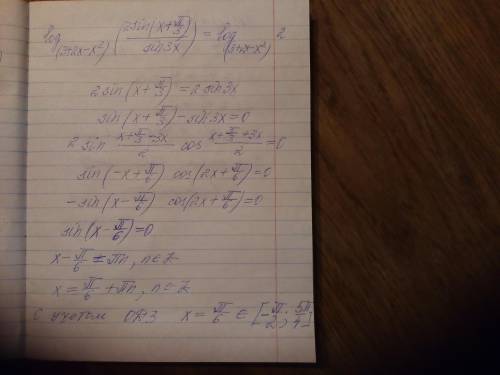 log_(2+2x-x²) (2sin(x+π/3)/sin3x) = log_(2+2x-x²) 2
2sin(x+π/3) = 2sin3x
sin(x+π/3) - sin3x = 0
2 sin (x+π/3-3x)/2 cos (x+π/3+3x)/2 = 0
sin(-x+π/6) cos(2x+π/6) = 0
-sin(x-π/6) cos(2x+π/6) = 0
sin(x-π/6) = 0
x-π/6 = πn, n∈Z
x = π/6 + πn, n∈Z
С учётом ОДЗ x = π/6 ∈ [-π/2; 5π/4]